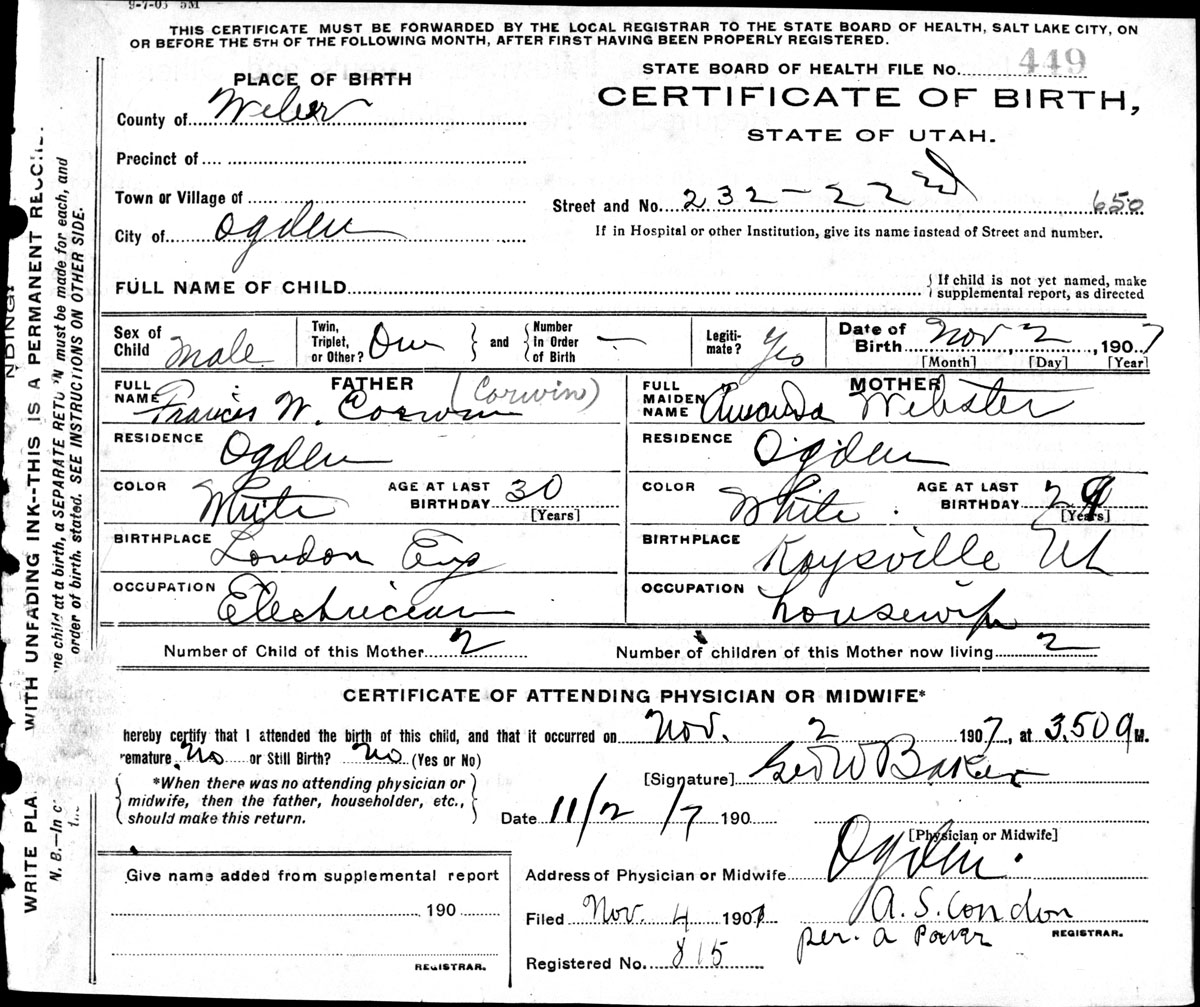 9-7-03 5M
THIS CERTIFICATE MUST BE FORWARDED BY THE LOCAL REGISTRAR TO THE STATE BOARD OF HEALTH, SALT LAKE CITY, ON
OR BEFORE THE 5TH OF THE FOLLOWING MONTH, AFTER FIRST HAVING BEEN PROPERLY REGISTERED.
STATE BOARD OF HEALTH FILE No. 449
CERTIFICATE OF BIRTH,
STATE OF UTAH.
PLACE OF BIRTH
County of Weber
Precinct of
Town or Village of
City of Ogden
Street and No. 232-22nd 650
If in Hospital or other Institution, give its name instead of Street and number.
FULL NAME OF CHILD
If child is not yet named, make
supplemental report, as directed
Sex of Child Male
Twin, Triplet, or Other? One and Number In Order of Birth -
Legitimate? Yes
Date of Birth Nov 2, 1907
[Month] [Day] [Year]
FATHER
FULL NAME Francis W. Corwin (Corwin)
RESIDENCE Ogden
COLOR White AGE AT LAST BIRTHDAY 30
[Years]
BIRTHPLACE London Eng
OCCUPATION Electrician
MOTHER
FULL MAIDEN NAME Amanda Webster
RESIDENCE Ogden
COLOR White. AGE AT LAST BIRTHDAY 29
[Years]
BIRTHPLACE Kaysville Ut
OCCUPATION housewife
Number of Child of this Mother 2 Number of children of this Mother now living 2
CERTIFICATE OF ATTENDING PHYSICIAN OR MIDWIFE*
hereby certify that I attended the birth of this child, and that it occurred on Nov. 2 1907, at 3.50 a M.
remature No or Still Birth? No (Yes or No)
*When there was no attending physician or
midwife, then the father, householder, etc.,
should make this return.
[Signature] Geo W Baker
Date 11/2/7 190
[Physician or Midwife]
Give name added from supplemental report
190
REGISTRAR.
Address of Physician or Midwife Ogden.
Filed Nov. 4 1907 A. S. Condon
per. a Power REGISTRAR.
Registered No. 815
WRITE PLA WITH UNFADING INK--THIS IS A PERMANENT RECO
N. B.—In c ne child at a birth, a SEPARATE RETU N must be made for each, and
order of birth. stated. SEE INSTRUCTIONS ON OTHER SIDE.